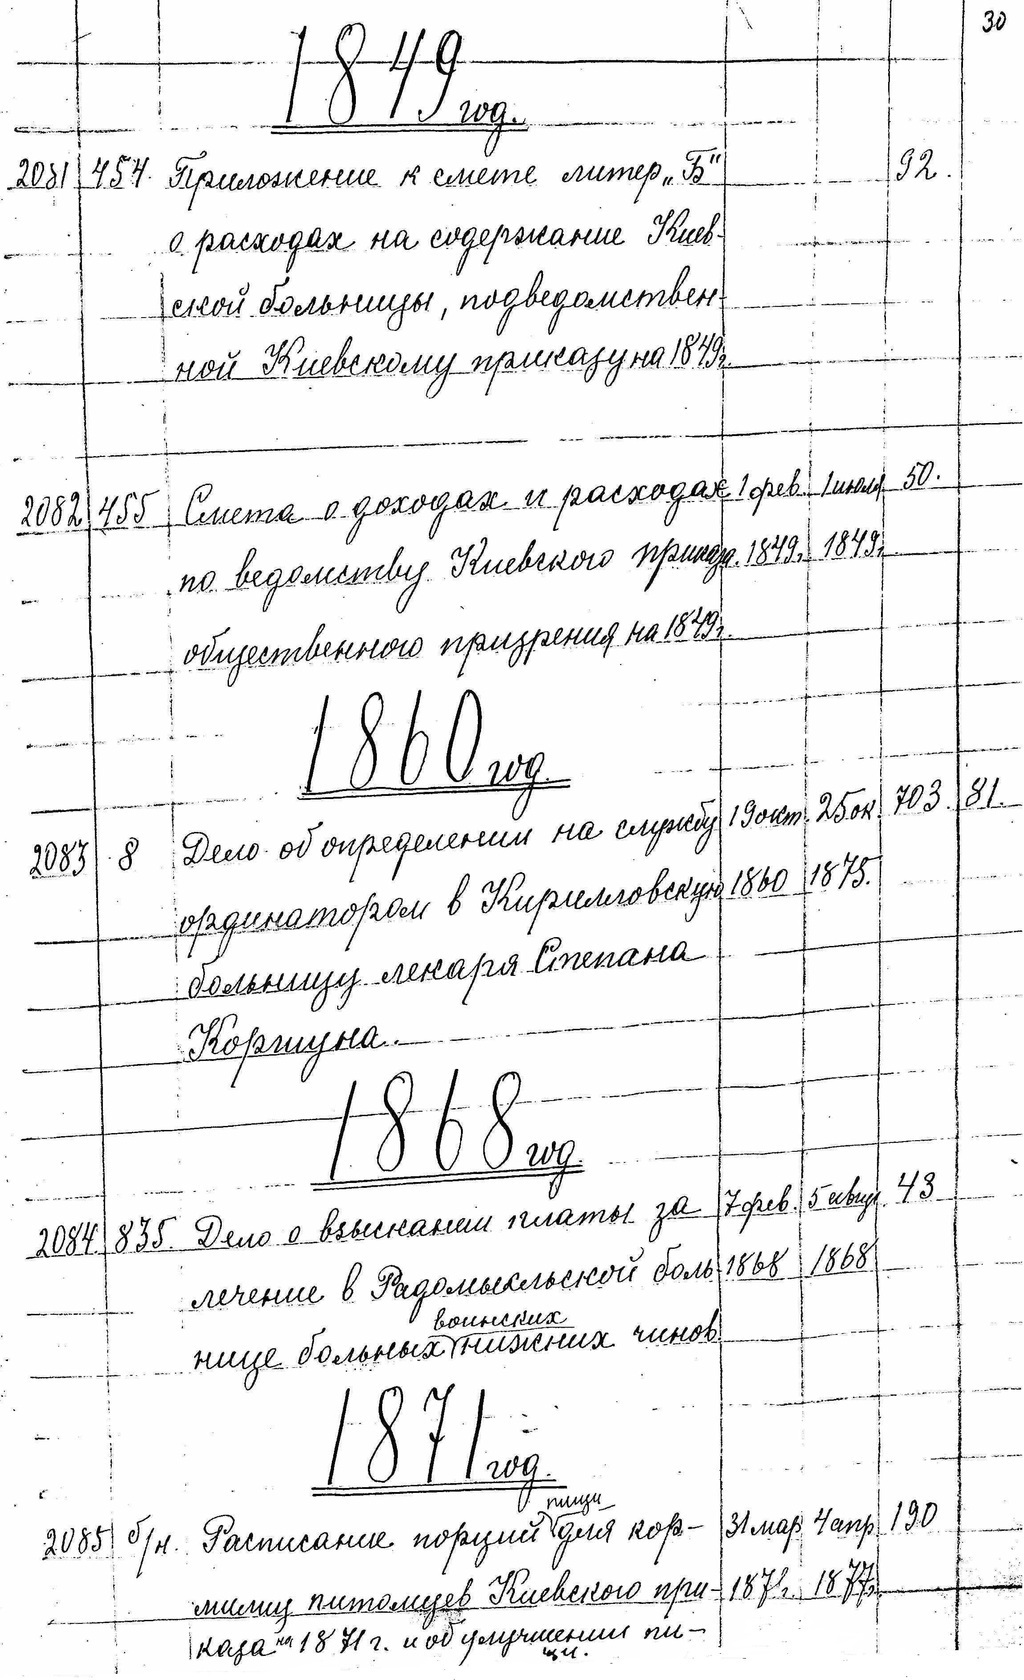 30
1849 год.
2081 454. Приложение к смете литер „Б" 92.
о расходах на содержание Киев-
ской больницы, подведомствен-
ной Киевскому приказу на 1849г.
2082 455 Смета о доходах и расходах 1 фев. 1 июля 50.
по ведомству Киевского приказа. 1849г. 1849г.
общественного призрения на 1849г.
1860 год.
2083 8 Дело об определении на службу 19 окт. 25 ок. 703. 81.
ординатором в Кирилловскую 1860 1875.
больницу лекаря Степана
Коршуна.
1868 год.
2084 835. Дело о взыскании платы за 7 фев. 5 авгус. 43
лечение в Радомысльской боль 1868 1868
воинских
нице больных нижних чинов
1871 год.
пищи
2085 б/н. Расписание порций для кор- 31 мар 4 апр 190
милиц питомцев Киевского при- 1871г. 1877г.
каза на 1871 г. и об улучшении пи-
щи.